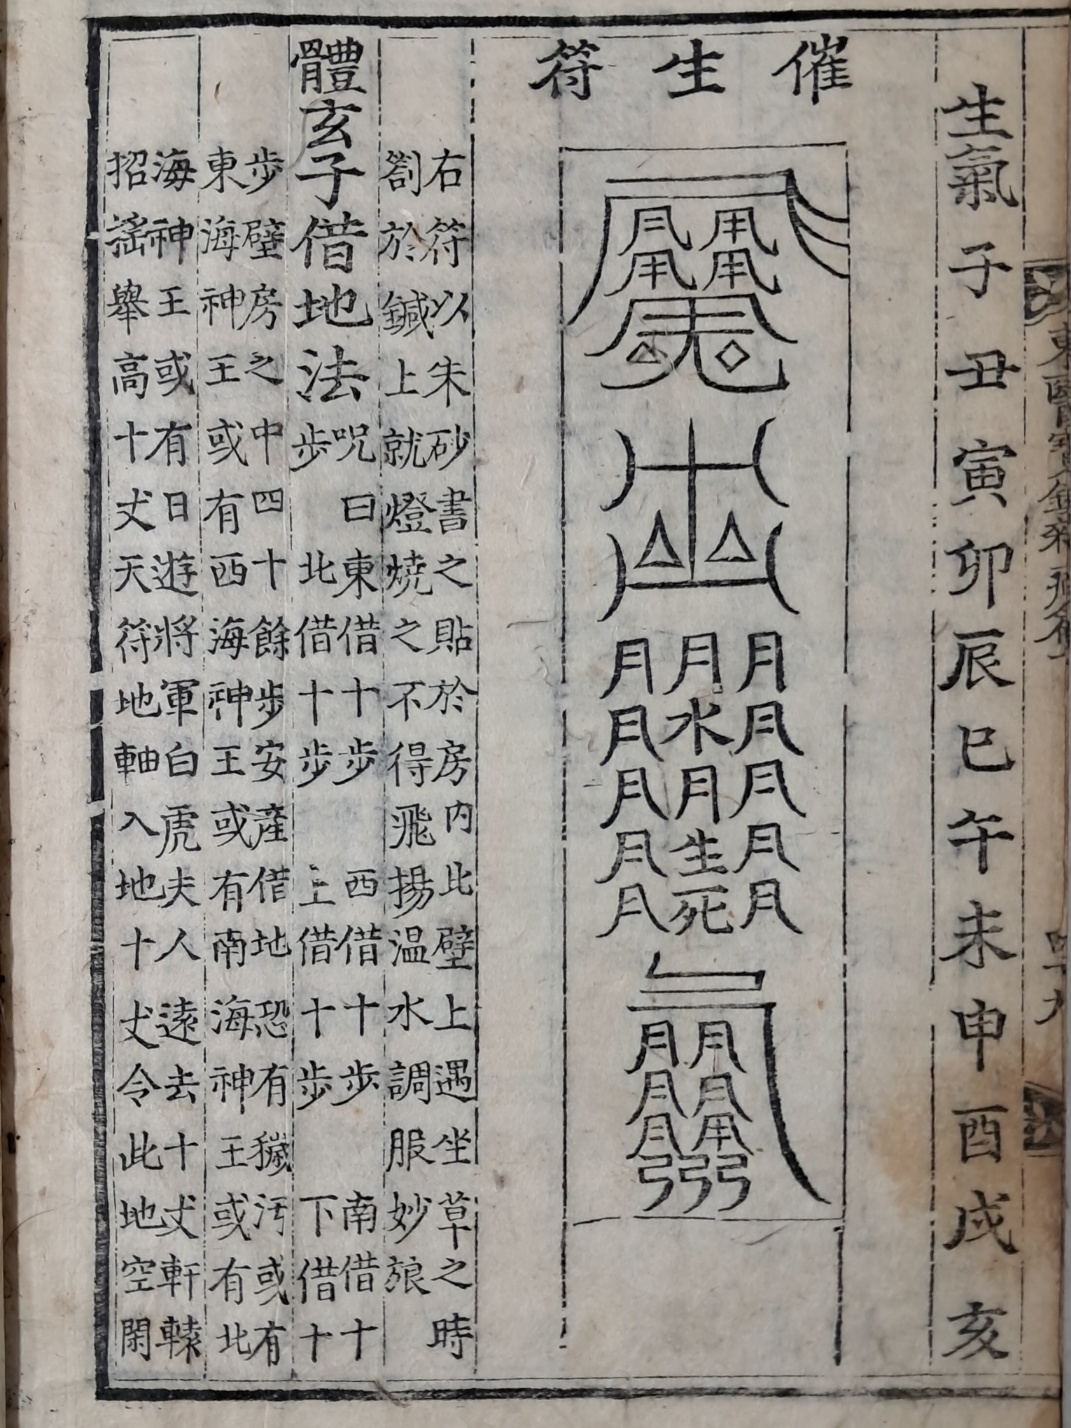 東醫寶鑑雜病
生氣子丑寅卯辰巳午未申酉戌亥
催生符
月月月
月水月
月月月
月生月
月死月
右符以朱砂書之貼於房内北壁上遇坐草之時
劄於鍼上就燈燒之不得飛揚温水調服妙
體玄子借地法
呪曰東借十步 西借十步 南借十
步 北借十步 上借十步 下借十
步壁房之中四十餘步安産借地恐有穢汚或有
東海神王或有西海神王或有南海神王或有北
海神王或有日遊將軍白虎夫人遠去十丈軒轅
招搖舉高十丈天符地軸入地十丈令此地空閑